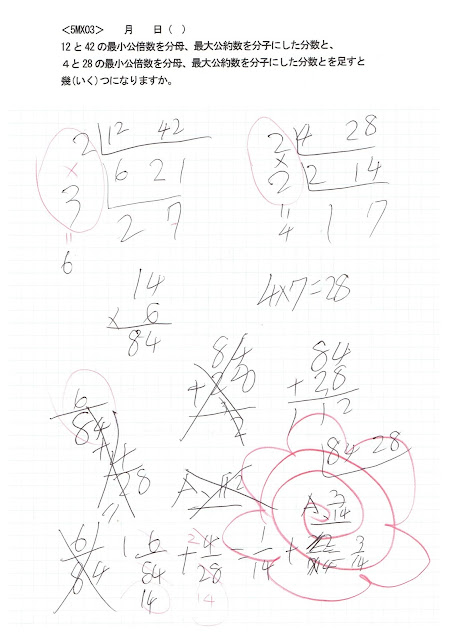 <5MX03> 月 日( )
12と42の最小公倍数を分母、最大公約数を分子にした分数と、
4と28の最小公倍数を分母、最大公約数を分子にした分数とを足すと
幾(いく)つになりますか。
2 12 42
× 6 21
3 2 7
= 6
2 4 28
× 2 14
2 1 7
= 4
14
× 6
84
4×7=28
84
+28
112
6/84
+ 4/28
84
+28
112
84 28
A, 3/14
6/84
6/84 + 4/28 = 1/14 + 3/14
14 14